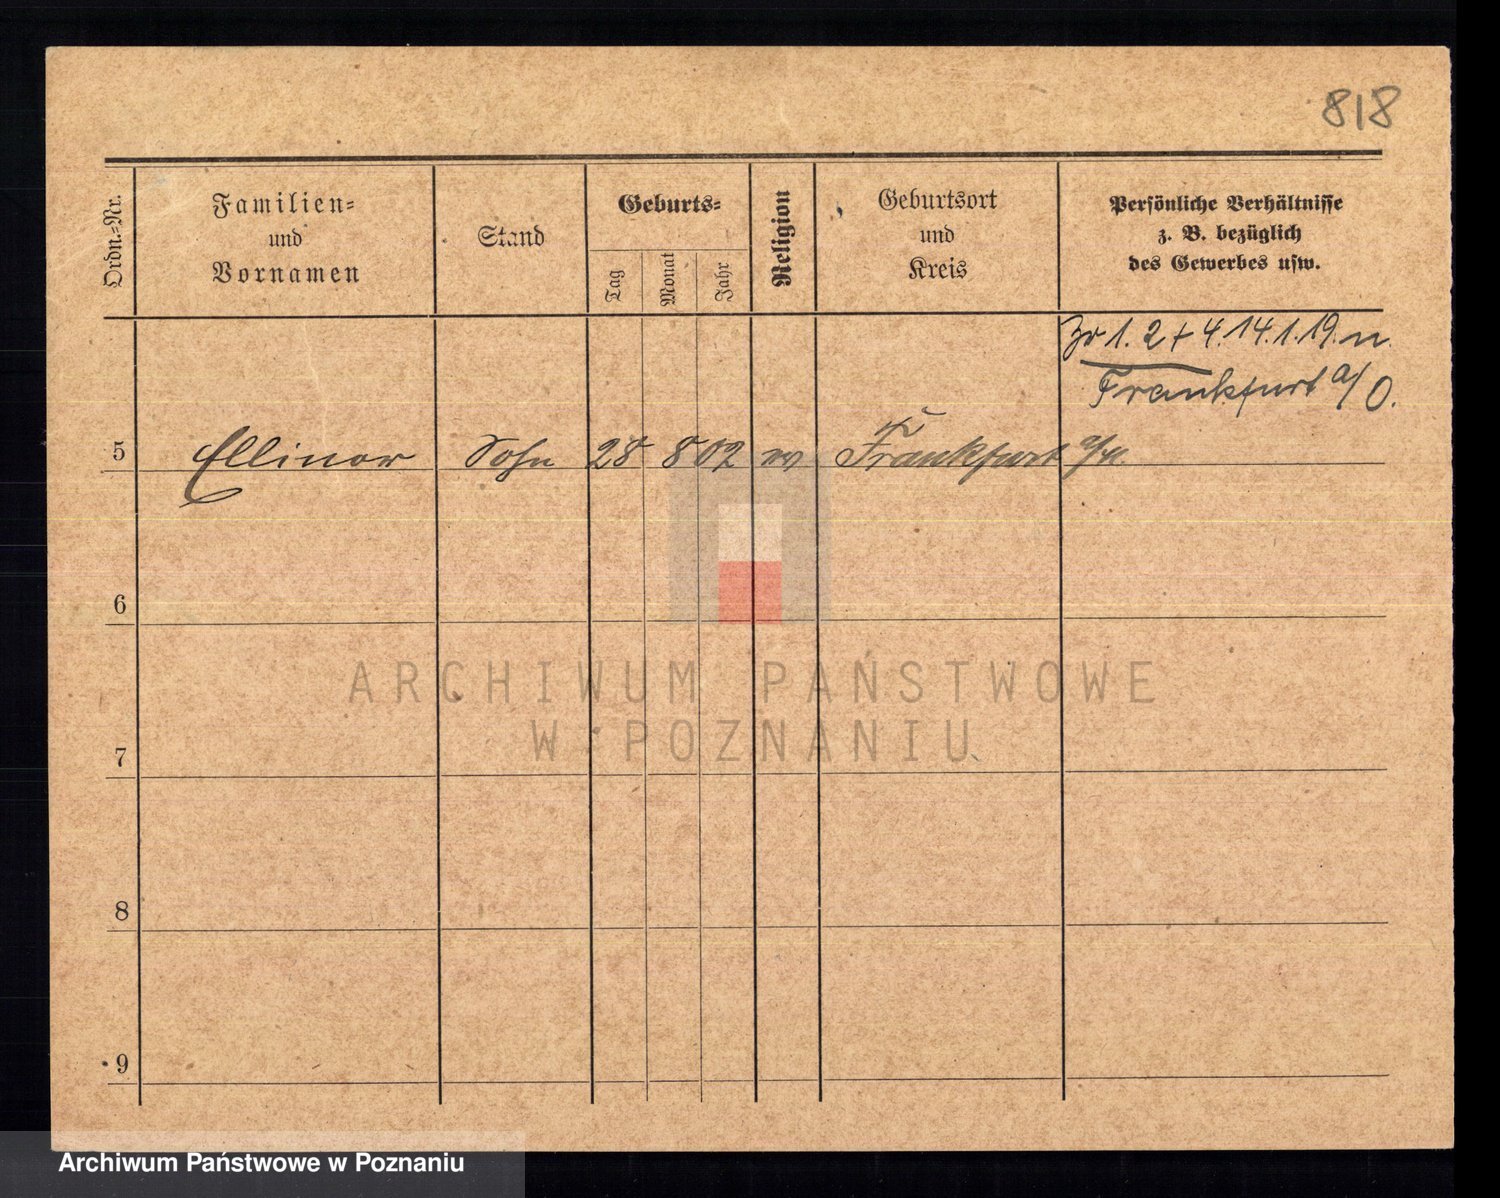 818
Ordn.-Nr.
Familien-
und
Vornamen
Stand
Geburts-
Tag
Monat
Jahr
Religion
Geburtsort
und
Kreis
Persönliche Verhältnisse
z. B. bezüglich
des Gewerbes usw.
Zu 1. 2 + 4. 14.1.19. n.
Frankfurt a/O.
5 Ellinor Sohn 28 8 02 ev Frankfurt a/M.
6
7
8
9
ARCHIWUM PAŃSTWOWE
W POZNANIU
Archiwum Państwowe w Poznaniu